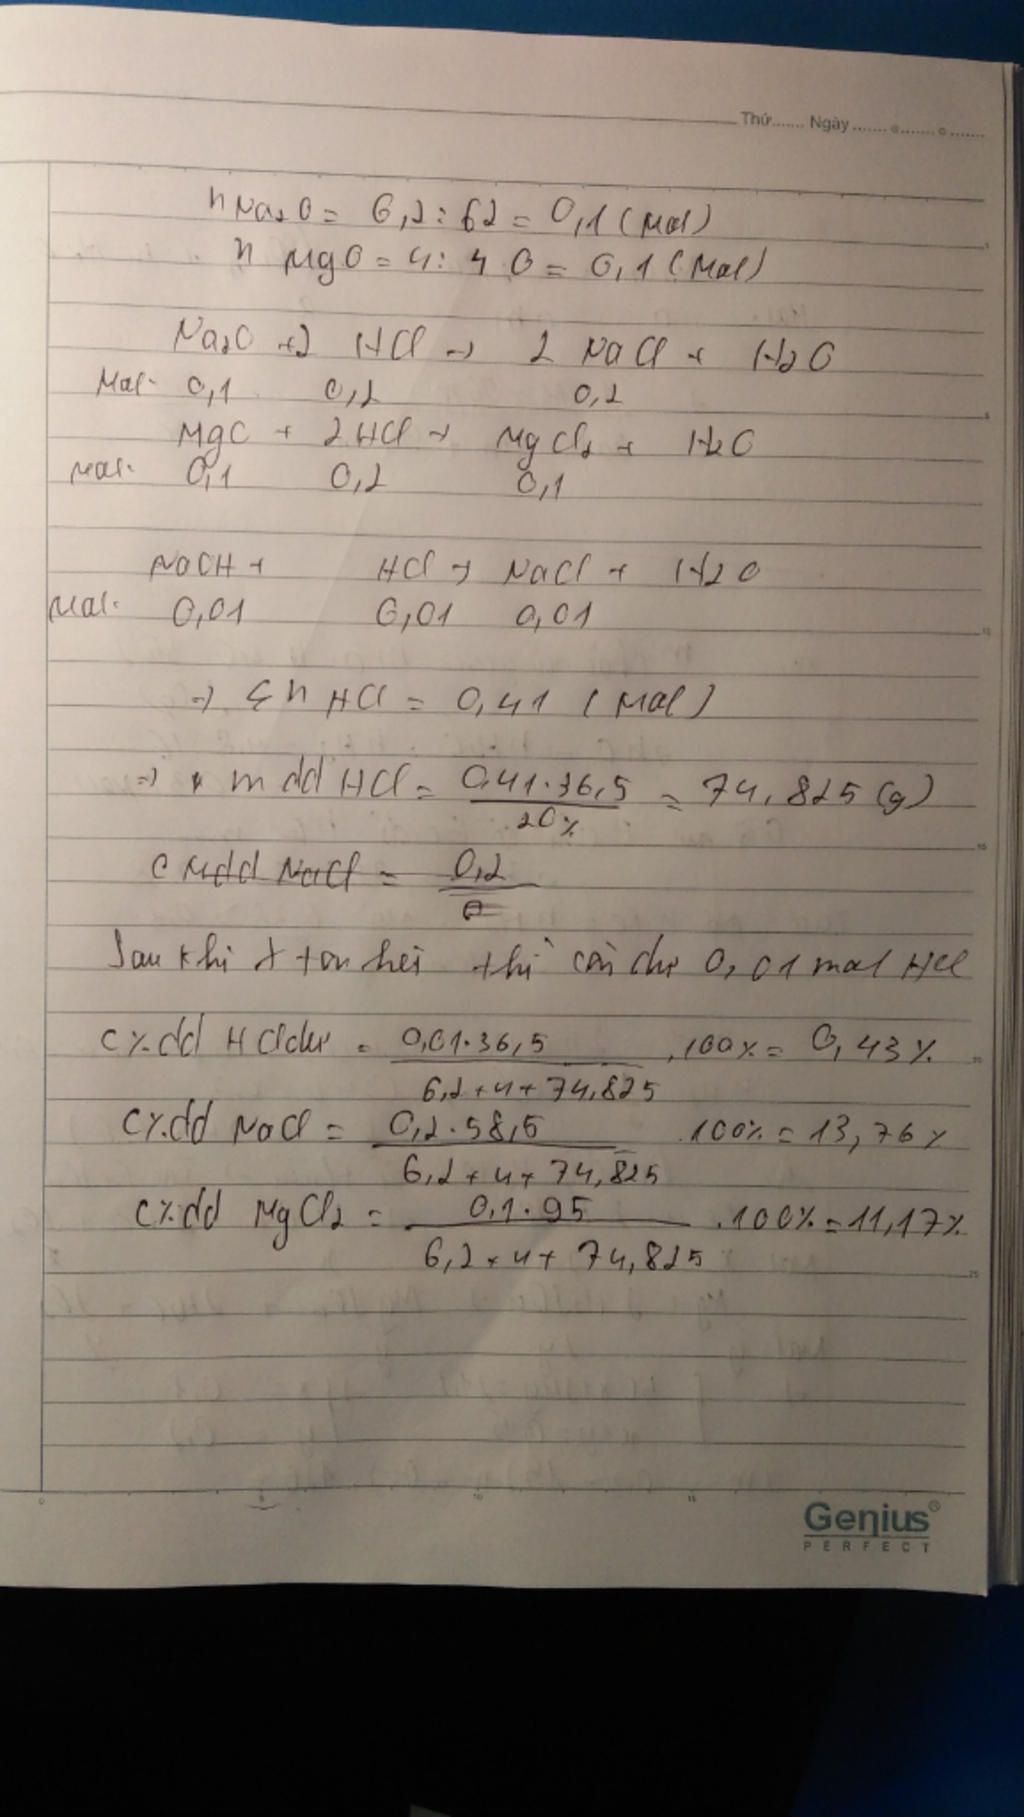 Thứ....... Ngày ....... o ....... o .......
n Na2O = 6,2 : 62 = 0,1 (mol)
n MgO = 4 : 40 = 0,1 (mol)
Na2O + 2 HCl → 2 NaCl + H2O
Mol: 0,1 0,2 0,2
MgO + 2HCl → MgCl2 + H2O
Mol: 0,1 0,2 0,1
NaOH + HCl → NaCl + H2O
Mol: 0,01 0,01 0,01
=> Σn HCl = 0,41 (mol)
=> m dd HCl = 0,41.36,5 / 20% = 74,825 (g)
CM dd NaCl = 0,2
Sau khi X tan hết thì còn dư 0,01 mol HCl
C% dd HCl dư = 0,01.36,5 / 6,2 + 4 + 74,825 .100% = 0,43%
C% dd NaCl = 0,2.58,5 / 6,2 + 4 + 74,825 .100% = 13,76%
C% dd MgCl2 = 0,1.95 / 6,2 + 4 + 74,825 .100% = 11,17%
Genius®
PERFECT